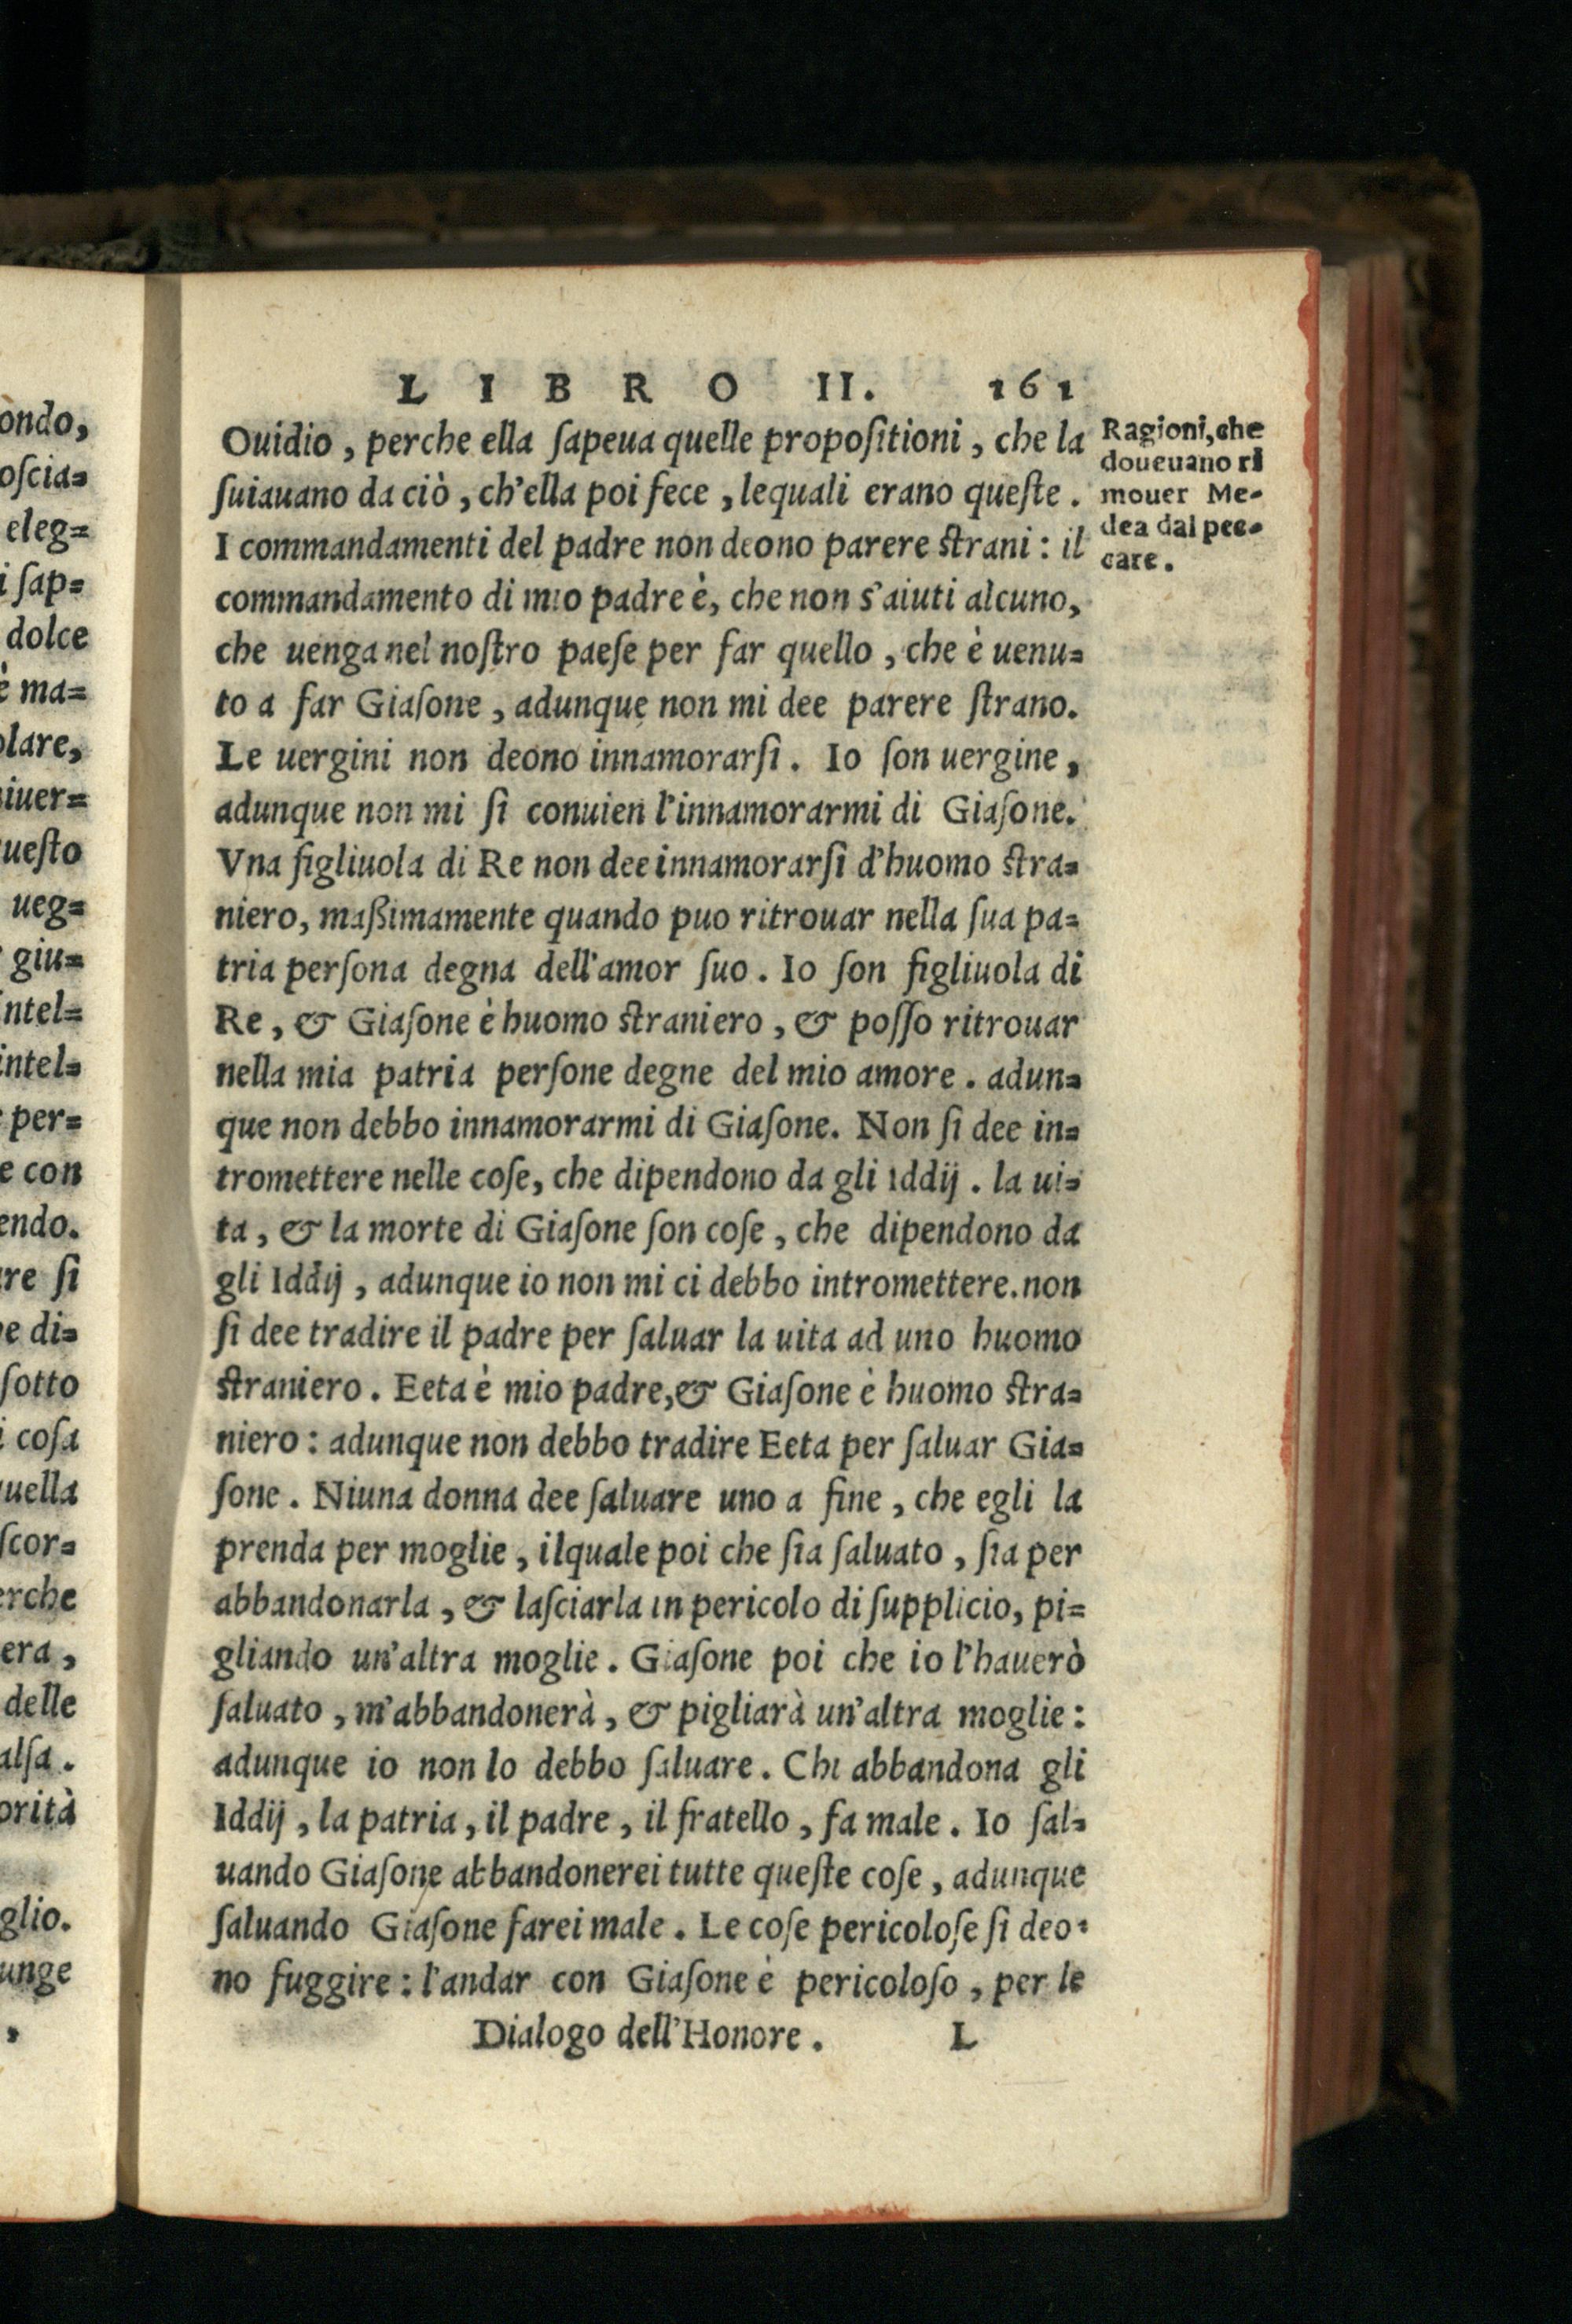 ondo,
oſcia=
eleg=
i ſap=
dolce
è ma=
olare,
iuer=
ueſto
ueg=
giu=
ntel=
intel=
per=
e con
endo.
re ſi
e di=
ſotto
i coſa
uella
ſcor=
erche
era,
delle
alſa.
orità
glio.
unge
,
LIBRO II. 161
Ouidio, perche ella ſapeua quelle propoſitioni, che la
ſuiauano da ciò, ch'ella poi fece, lequali erano queſte.
I commandamenti del padre non deono parere ſtrani: il
commandamento di mio padre è, che non s'aiuti alcuno,
che uenga nel noſtro paeſe per far quello, che è uenu=
to a far Giaſone, adunque non mi dee parere ſtrano.
Le uergini non deono innamorarſi. Io ſon uergine,
adunque non mi ſi conuien l'innamorarmi di Giaſone.
Vna figliuola di Re non dee innamorarſi d'huomo ſtra=
niero, maßimamente quando puo ritrouar nella ſua pa=
tria perſona degna dell'amor ſuo. Io ſon figliuola di
Re, & Giaſone è huomo ſtraniero, & poſſo ritrouar
nella mia patria perſone degne del mio amore. adun=
que non debbo innamorarmi di Giaſone. Non ſi dee in=
tromettere nelle coſe, che dipendono da gli Iddij. la ui=
ta, & la morte di Giaſone ſon coſe, che dipendono da
gli Iddij, adunque io non mi ci debbo intromettere. non
ſi dee tradire il padre per ſaluar la uita ad uno huomo
ſtraniero. Eeta è mio padre, & Giaſone è huomo ſtra=
niero: adunque non debbo tradire Eeta per ſaluar Gia=
ſone. Niuna donna dee ſaluare uno a fine, che egli la
prenda per moglie, ilquale poi che ſia ſaluato, ſia per
abbandonarla, & laſciarla in pericolo di ſupplicio, pi=
gliando un'altra moglie. Giaſone poi che io l'hauerò
ſaluato, m'abbandonerà, & pigliarà un'altra moglie:
adunque io non lo debbo ſaluare. Chi abbandona gli
Iddij, la patria, il padre, il fratello, fa male. Io ſal=
uando Giaſone abbandonerei tutte queſte coſe, adunque
ſaluando Giaſone farei male. Le coſe pericoloſe ſi deo=
no fuggire: l'andar con Giaſone è pericoloſo, per le
Dialogo dell'Honore. L
Ragioni, che
doueuano ri
mouer Me-
dea dal pec-
care.